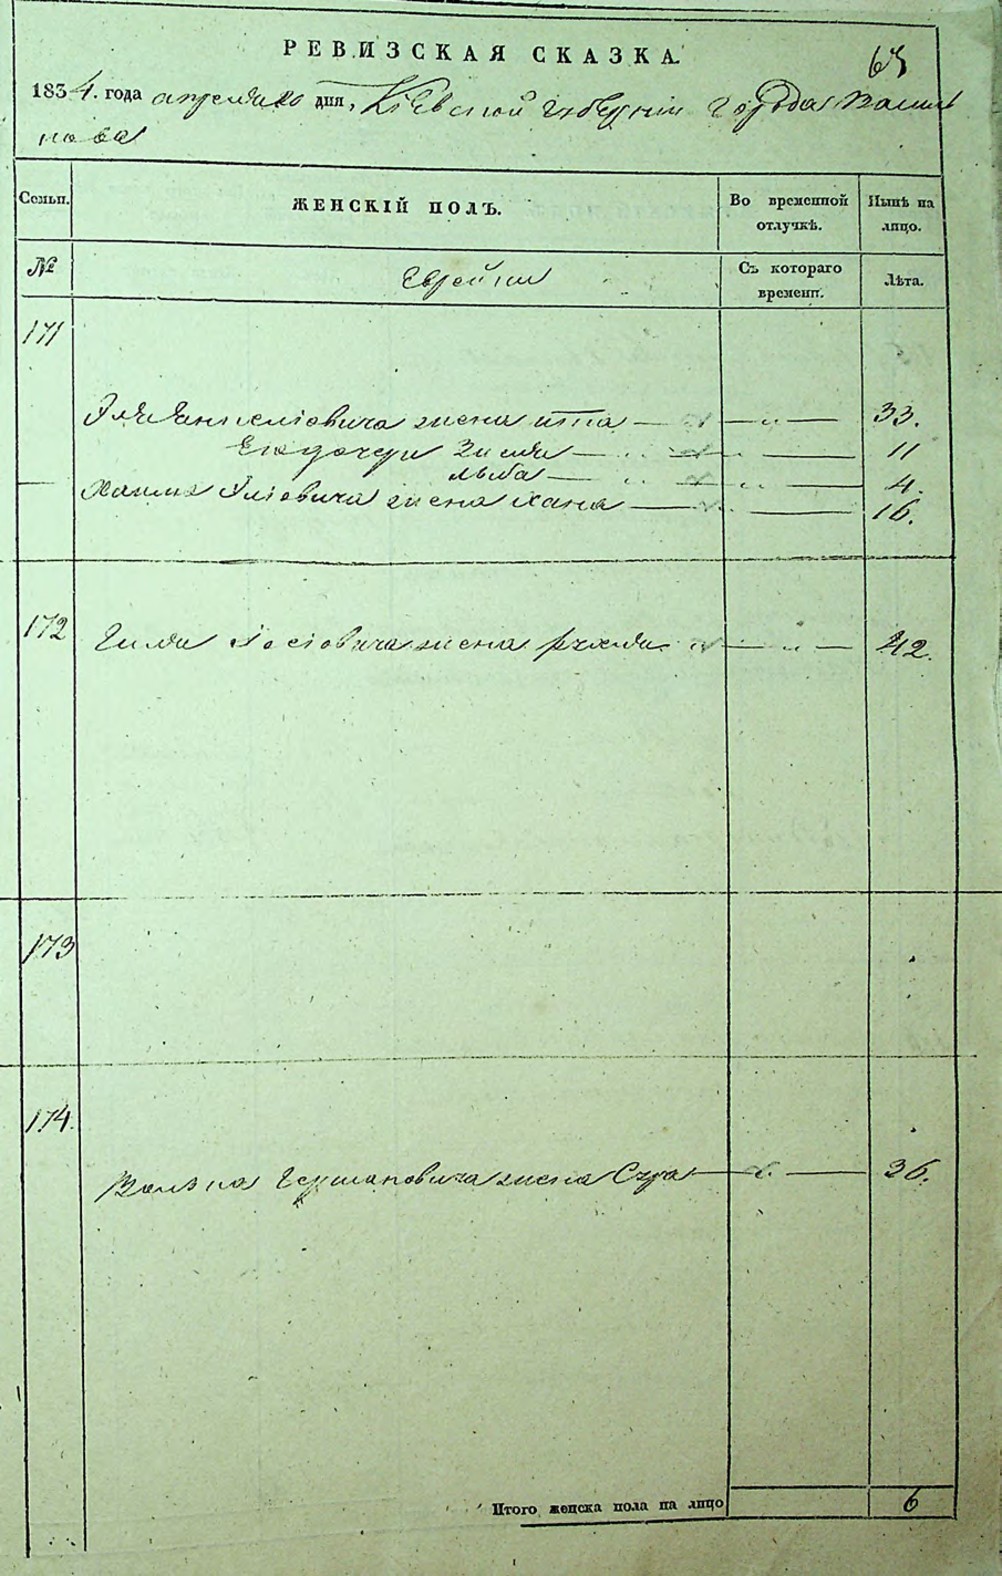 РЕВИЗСКАЯ СКАЗКА.
1834. года апреля 20 дня, Киевской губернии города Васил
кова
Семьи. ЖЕНСКІЙ ПОЛЪ. Во временной отлучкѣ. Нынѣ на лицо.
№ Еврейки Съ котораго времени. Лѣта.
171
жена ита 33.
Его дочери Зисля 11
4.
Хаима Эліовича жена Хана 16.
172 Іосіовича жена рухля 42.
173
174.
Волька Гершковича жена Сура 36.
Итого женска пола на лицо 6